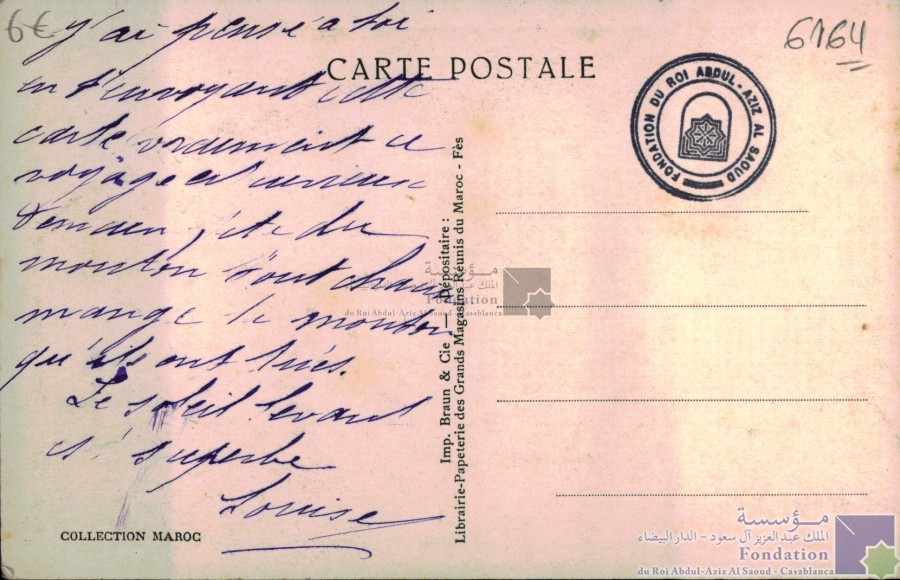 6€
6164
CARTE POSTALE
FONDATION DU ROI ABDUL-AZIZ AL SAOUD
j'ai pensé a toi
en t'envoyant cette
carte vraiment ce
voyage est curieux
Demain fête du
mouton tout chacun
mange le mouton
qu'ils ont tués.
Le soleil levant
est superbe
Louise
COLLECTION MAROC
Imp. Braun & Cie — Dépositaire :
Librairie-Papeterie des Grands Magasins Réunis du Maroc - Fès
مؤسسة
الملك عبد العزيز آل سعود - الدار البيضاء
Fondation
du Roi Abdul-Aziz Al Saoud - Casablanca
مؤسسة
الملك عبد العزيز آل سعود - الدار البيضاء
Fondation
du Roi Abdul-Aziz Al Saoud - Casablanca